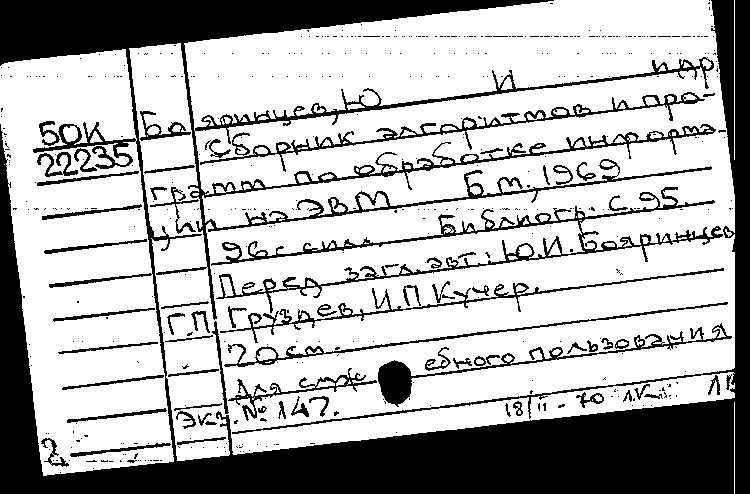 50К Бояринцев, Ю И и др
22235 Сборник алгоритмов и про-
грамм по обработке информа-
ции на ЭВМ. Б.м., 1969
96 с силл. Библиогр. с. 95.
Перед загл. авт.: Ю.И. Бояринцев
Г.П. Груздев, И.П. Кучер.
20 см.
Для служебного пользования
Экз. № 147.
18/II - 70